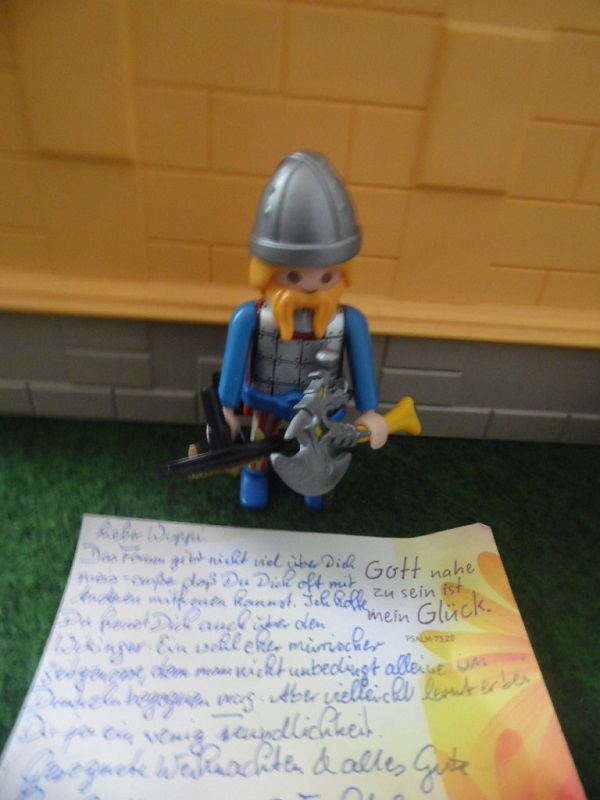 Lieber Wuppi
Das Forum gibt nicht viel über Dich
preis - außer daß Du Dich oft mit
Anderen mitfreuen kannst. Ich hoffe
Du freust Dich auch über den
Wikinger. Ein wohl eher mürrischer
Zeitgenosse, dem man nicht unbedingt alleine im
Dunkeln begegnen mag. Aber vielleicht lernt er bei
Dir ja ein wenig Freundlichkeit.
Gesegnete Weihnachten & alles Gute
Gott nahe
zu sein ist
mein Glück.
PSALM 73,28